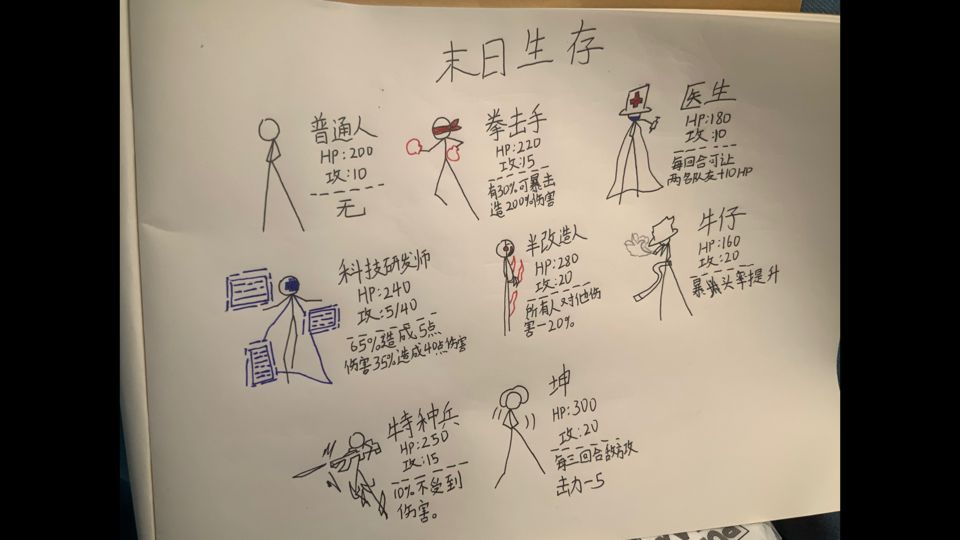 末日生存
普通人
HP:200
攻:10
无
拳击手
HP:220
攻:15
有30%可暴击
造200%伤害
医生
HP:180
攻:10
每回合可让
两名队友+10HP
科技研发师
HP:240
攻:5/40
65%造成5点
伤害35%造成40点伤害
半改造人
HP:280
攻:20
所有人对他伤
害-20%。
牛仔
HP:160
攻:20
暴头率提升
特种兵
HP:250
攻:15
10%不受到
伤害。
坤
HP:300
攻:20
每三回合敌方攻
击力-5